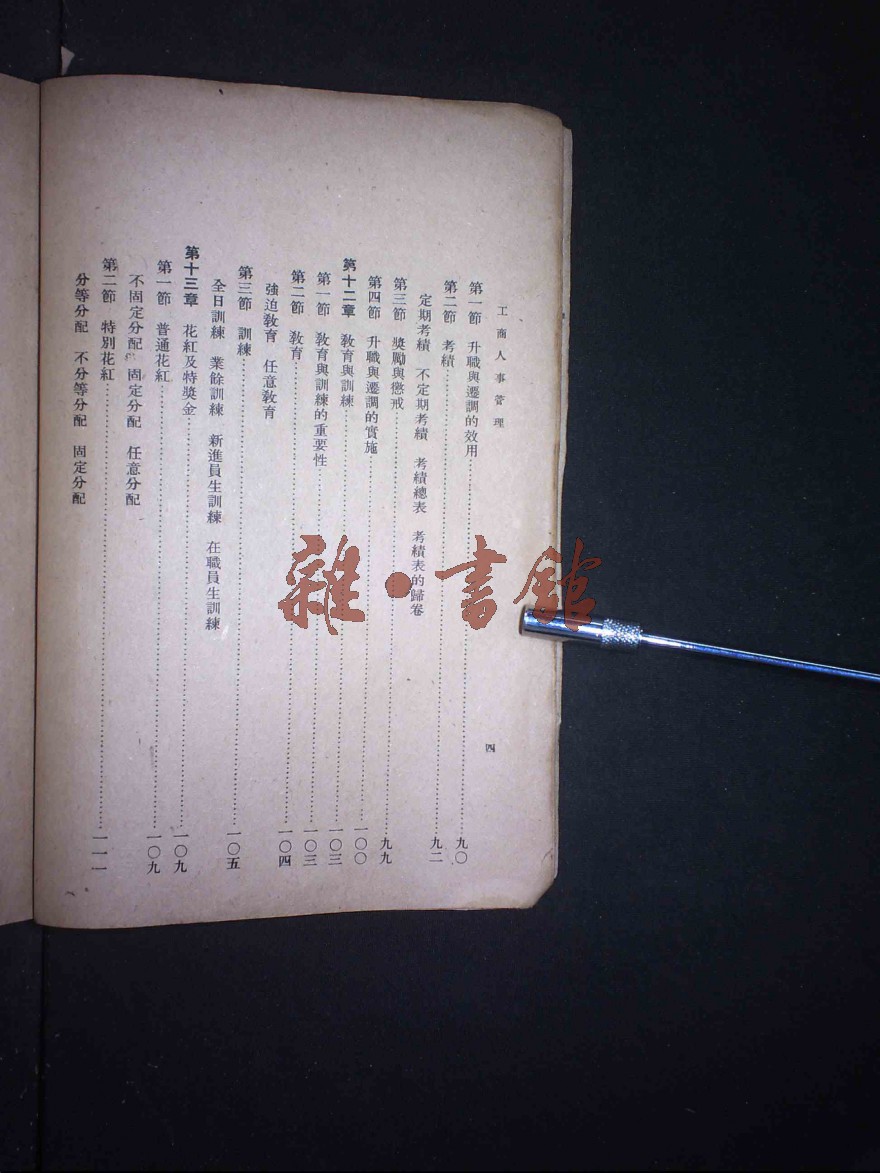 工商人事管理
四
第一節 升職與遷調的效用……九〇
第二節 考績……九二
定期考績 不定期考績 考績總表 考績表的歸卷
第三節 獎勵與懲戒……九九
第四節 升職與遷調的實施……一〇〇
第十二章 教育與訓練……一〇三
第一節 教育與訓練的重要性……一〇三
第二節 教育……一〇四
強迫教育 任意教育
第三節 訓練……一〇五
全日訓練 業餘訓練 新進員生訓練 在職員生訓練
第十三章 花紅及特獎金……一〇九
第一節 普通花紅……一〇九
不固定分配 固定分配 任意分配
第二節 特別花紅……一一一
分等分配 不分等分配 固定分配
雜·書館